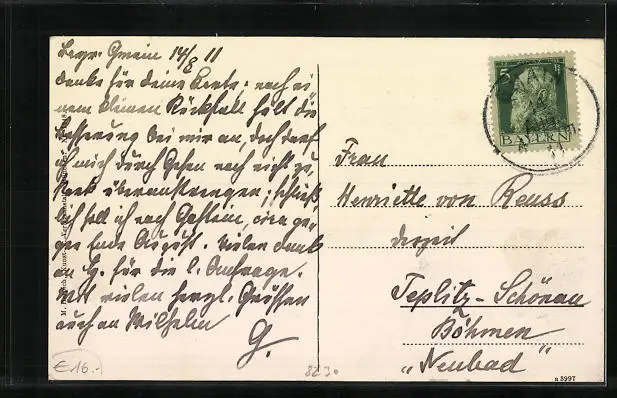 Bayr. Gmein 14/8 11
Danke für deine Karte; nach ei
nem kleinen Rückfall hält die
Besserung bei mir an, doch darf
ich mich durch Gehen noch nicht zu
stark überanstrengen; schließ
lich soll ich nach Gastein, circa ge
gen Ende August. Vielen Dank
an H. für die l. Anfrage.
Mit vielen herzl. Grüssen
auch an Wilhelm
G.
€16.-
8230
5
BAYERN
Frau
Henriette von Reuss
derzeit
Teplitz-Schönau
Böhmen
„Neubad"
a 8997